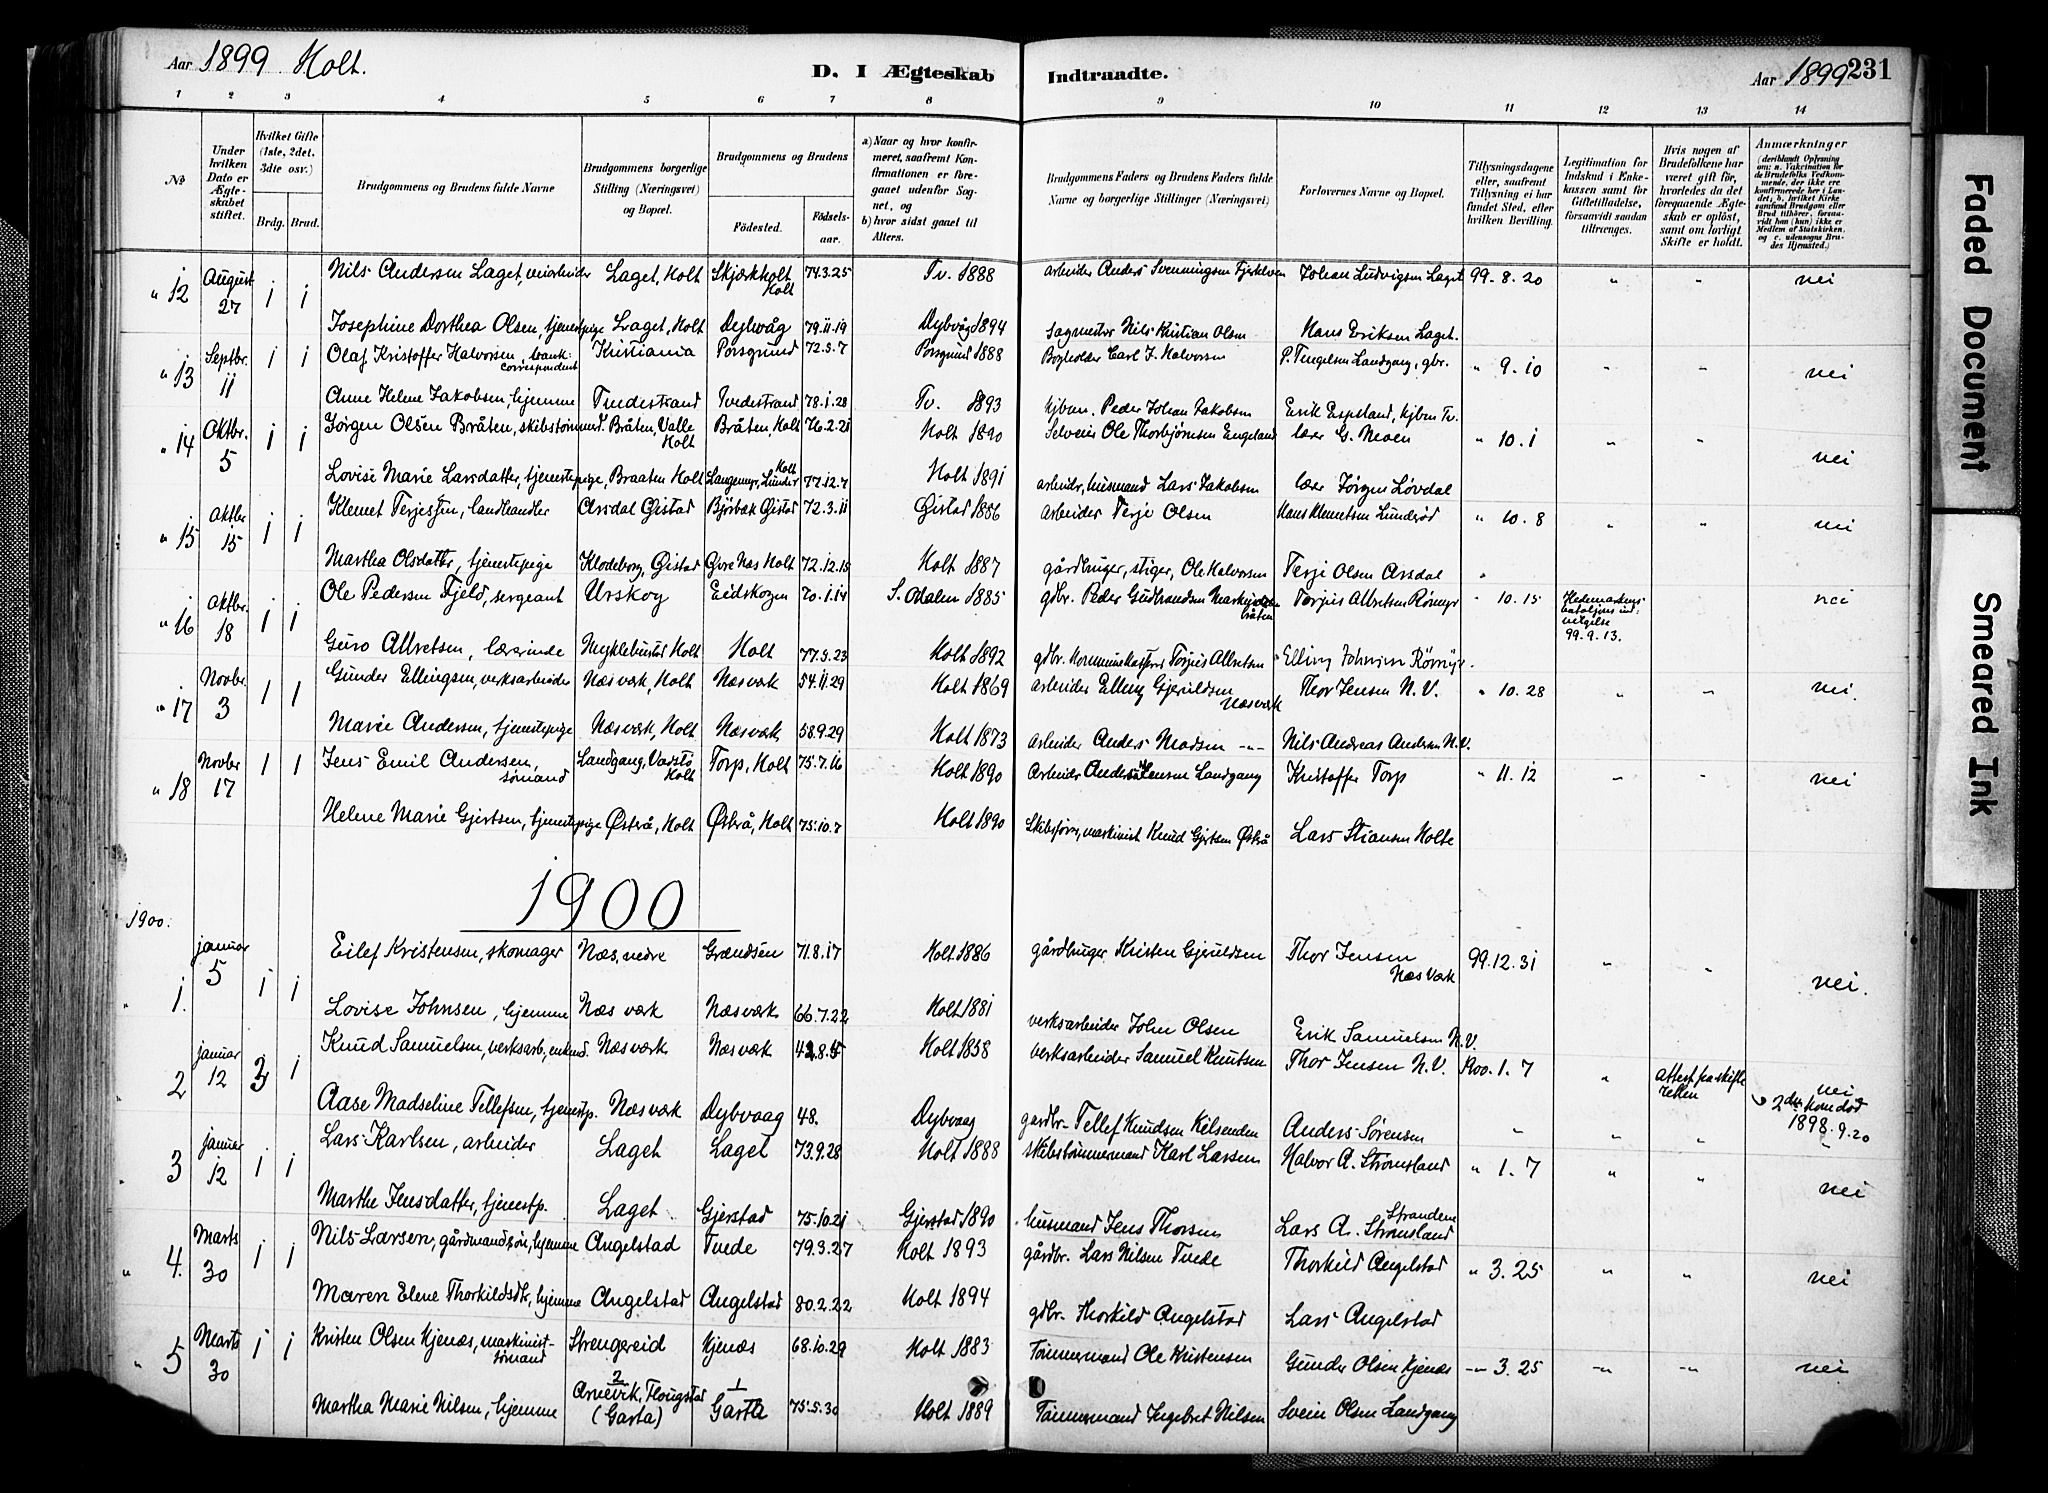 Aar 1899 Holt.
D. I Ægteskab Indtraadte.
Aar 1899 231
1 2 3 4 5 6 7 8 9 10 11 12 13 14
No
Under hvilken Dato er Ægteskabet stiftet.
Hvilket Gifte (1ste, 2det, 3die osv.)
Brdg. Brud.
Brudgommens og Brudens fulde Navne
Brudgommens borgerlige Stilling (Næringsvei) og Bopæl.
Brudgommens og Brudens
Fødested.
Fødselsaar.
a) Naar og hvor konfirmeret, saafremt Konfirmationen er foregaaet udenfor Sognet, og
b) hvor sidst gaaet til Alters.
Brudgommens Faders og Brudens Faders fulde Navne og borgerlige Stillinger (Næringsvei)
Forlovernes Navne og Bopæl.
Tillysningsdagene eller, saafremt Tillysning ei har fundet Sted, efter hvilken Bevilling.
Legitimation for Indskud i Enkekassen samt for Giftetilladelse, forsaavidt saadan tiltrænges.
Hvis nogen af Brudefolkene har været gift før, hvorledes da det foregaaende Ægteskab er opløst, samt om lovligt Skifte er holdt.
Anmærkninger
(deriblandt Oplysning om: a. Vakcination for de Brudefolks Vedkommende, der ikke ere konfirmerede her i Landet; b. hvilket Kirkesamfund Brudgom eller Brud tilhører, forsaavidt han (hun) ikke er Medlem af Statskirken, og c. udensogns Brudes Hjemsted.)
" 12 August 27 1 1 Nils Andersen Laget, veiarbeider Laget, Holt Skjærkholt Holt 74.3.25 Tv. 1888 arbeider Anders Svenningsen Johan Ludvigsen Laget 99.8.20 " " nei
Josephine Dorthea Olsen, tjenestpige Laget, Holt Dybvåg 79.11.19 Dybvåg 1894 sagmester Nils Kristian Olsen Hans Eriksen Laget.
" 13 Septbr. 11 1 1 Olaf Kristoffer Halvorsen, bank-correspondent Kristiania Porsgrund 72.5.7 Porsgrund 1888 Bogholder Carl J. Halvorsen P. Tengelsen Landgang, gbr. " 9.10 " " nei
Anne Helene Jakobsen, hjemme Tvedestrand Tvedestrand 78.1.28 Tv. 1893 kjbm. Peder Johan Jakobsen Erik Espeland, kjbm Tv.
" 14 Oktbr. 5 1 1 Jørgen Olsen Bråten, skibstømmd. Bråten, Valle Holt Bråten, Holt 76.2.21 Holt 1890 Selveier Ole Thorbjørnsen Engeland lærer G. Moen " 10.1 " " nei
Lovise Marie Larsdatter, tjenestepige, Braaten Holt Langemyr, Lunder Holt 77.12.7 Holt 1891 arbeider, husmand Lars Jakobsen lærer Jørgen Løvdal
" 15 Oktbr 15 1 1 Klemet Terjessen, landhandler Arsdal Øistad Bjørbæk Øistad 72.3.11 Øistad 1886 arbeider Terje Olsen Hans Klemetsen Lunderød " 10.8 " " nei
Martha Olsdatter, tjenestepige Klodeborg, Øistad Øvre Næs Holt 72.12.15 Holt 1887 gårdbruger, stiger, Ole Halvorsen Terje Olsen Arsdal "
" 16 Oktbr. 18 1 1 Ole Pedersen Fjeld, sergeant Urskog Eidskogen 70.1.14 S. Odalen 1885 gdbr. Peder Gudbrandsen Terjus Allretsen Rømyr " 10.15 Hedemarkens bataljons 99.9.13. nei
Guro Allretsen, lærerinde Myklebustad Holt Holt 77.5.23 Holt 1892 gdbr. Kommunekasserer Torjus Allretsen Elling Johnsen Rømyr.
" 17 Novbr. 3 1 1 Gunder Ellingsen, verksarbeider Næs værk, Holt Næsværk 54.11.29 Holt 1869 arbeider Elling Gjeruldsen Næsværk Thor Jensen N.V. " 10.28 " " nei.
Marie Andersen, tjenestepige Næsværk, Holt Næsværk 58.9.29 Holt 1873 arbeider Anders Madsen -"- Nils Andreas Andersen N.V.
" 18 Novbr 17 1 1 Jens Emil Andersen, sømand Landgang, Vadstø Holt Torp, Holt 75.7.16 Holt 1890 Arbeider Anders Jensen Landgang Kristoffer Torp " 11.12 " " nei
Helene Marie Gjertsen, tjenestepige Østerå, Holt Østerå, Holt 75.10.7 Holt 1890 Skibsfører, maskinist Knud Gjertsen Østerå Lars Stiansen Holte
1900
1900.
" 1. januar 5 1 1 Eilef Kristensen, skomager Næs, nedre Grændsen 71.8.17 Holt 1886 gårdbruger Kristen Gjeruldsen Thor Jensen Næs Værk 99.12.31 " " nei.
Lovise Johnsen, hjemme Næs værk Næsværk 66.7.22 Holt 1881 verksarbeider John Olsen Erik Samuelsen N.V.
2 januar 12 3 1 Knud Samuelsen, verksarb, enkmd. Næsværk Næsværk 42.8.5 Holt 1858 verksarbeider Samuel Knutsen Thor Jensen N.V. 1900.1.7 " attest fra skifteretten nei 2den kone død 1898.9.20
Aase Madseline Tellefsen, tjenestp. Næsværk Dybvaag 48. Dybvaag gardbr. Tellef Knudsen Kilsenden Anders Sørensen " " " "
3 januar 12 1 1 Lars Karlsen, arbeider Laget Laget 73.9.28 Holt 1888 Skibstømmermand Karl Larsen Halvor A. Strømsland " 1.7 " " nei
Marthe Jensdatter, tjenestp. Laget Gjerstad 75.10.21 Gjerstad 1890 husmand Jens Thorsen Lars A. Strømsland Strandene
" 4. Marts 30 1 1 Nils Larsen, gårdmandsøn, hjemme Angelstad Tvede 79.3.27 Holt 1893 gårdbr. Lars Nilsen Tvede Thorkild Angelstad " 3.25 " " nei
Maren Elene Thorkildsdtr, hjemme Angelstad Angelstad 80.2.22 Holt 1894 gdbr. Thorkild Angelstad Lars Angelstad
" 5 Marts 30 1 1 Kristen Olsen Kjenæs, maskinist-sømand Strengereid Kjenæs 68.10.29 Holt 1883 Tømmermand Ole Kristensen Gunder Olsen Kjenæs -"- 3.25 -"- -"- nei
Martha Marie Nilsen, hjemme 2 Arvevik, Flougstad (Garta) 1 Garta 75.5.30 Holt 1889 Tømmermand Ingebret Nilsen Svein Olsen Landgang
Faded Document
Smeared Ink